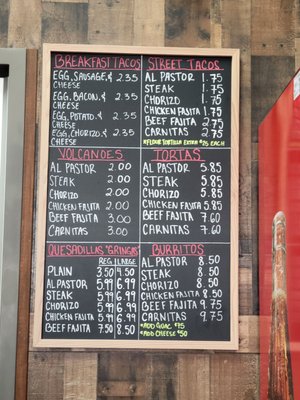 BREAKFAST TACOS
EGG, SAUSAGE, & 2.35
CHEESE
EGG, BACON, & 2.35
CHEESE
EGG, POTATO, & 2.35
CHEESE
EGG, CHORIZO, & 2.35
CHEESE
STREET TACOS
AL PASTOR 1.75
STEAK 1.75
CHORIZO 1.75
CHICKEN FAJITA 1.75
BEEF FAJITA 2.75
CARNITAS 2.75
*FLOUR TORTILLA EXTRA $.25 EACH
VOLCANOES
AL PASTOR 2.00
STEAK 2.00
CHORIZO 2.00
CHICKEN FAJITA 2.00
BEEF FAJITA 3.00
CARNITAS 3.00
TORTAS
AL PASTOR 5.85
STEAK 5.85
CHORIZO 5.85
CHICKEN FAJITA 5.85
BEEF FAJITA 7.60
CARNITAS 7.60
QUESADILLAS "GRINGAS"
REG LARGE
PLAIN 3.50 4.50
AL PASTOR 5.99 6.99
STEAK 5.99 6.99
CHORIZO 5.99 6.99
CHICKEN FAJITA 5.99 6.99
BEEF FAJITA 7.50 8.50
BURRITOS
AL PASTOR 8.50
STEAK 8.50
CHORIZO 8.50
CHICKEN FAJITA 8.50
BEEF FAJITA 9.75
CARNITAS 9.75
*ADD GUAC $.75
*ADD CHEESE $.50